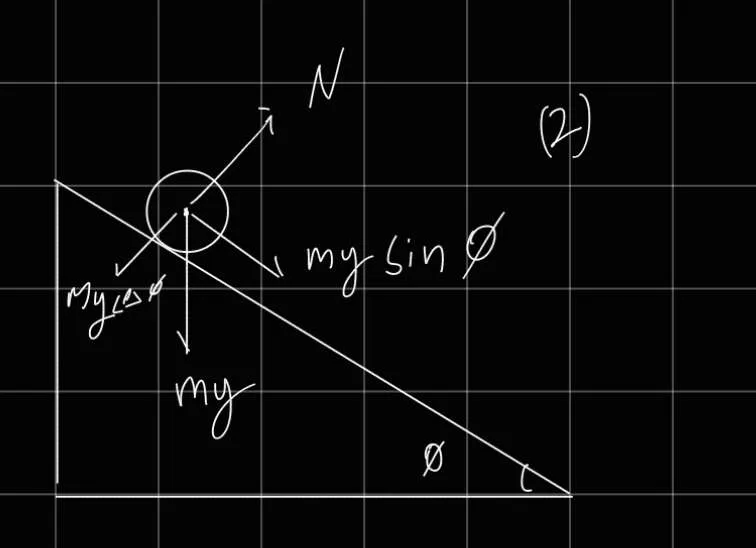 N
(2)
mg sin φ
mg cos φ
mg
φ